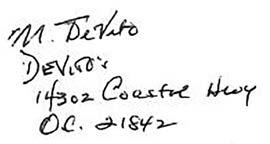 M. DeVito
DeVito's
14302 Coastal Hwy
O.C. 21842